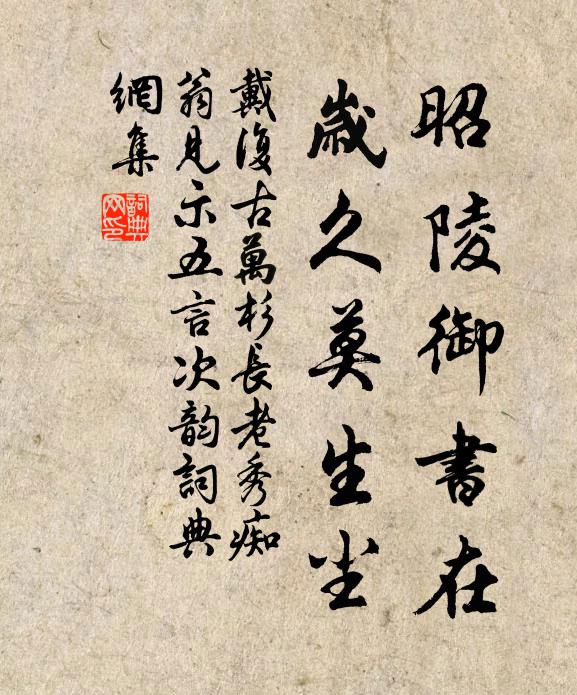 昭陵御書在
歲久莫生尘
戴復古萬杉長老秀痴
翁見示五言次韵詞典
網集
詞典
网印